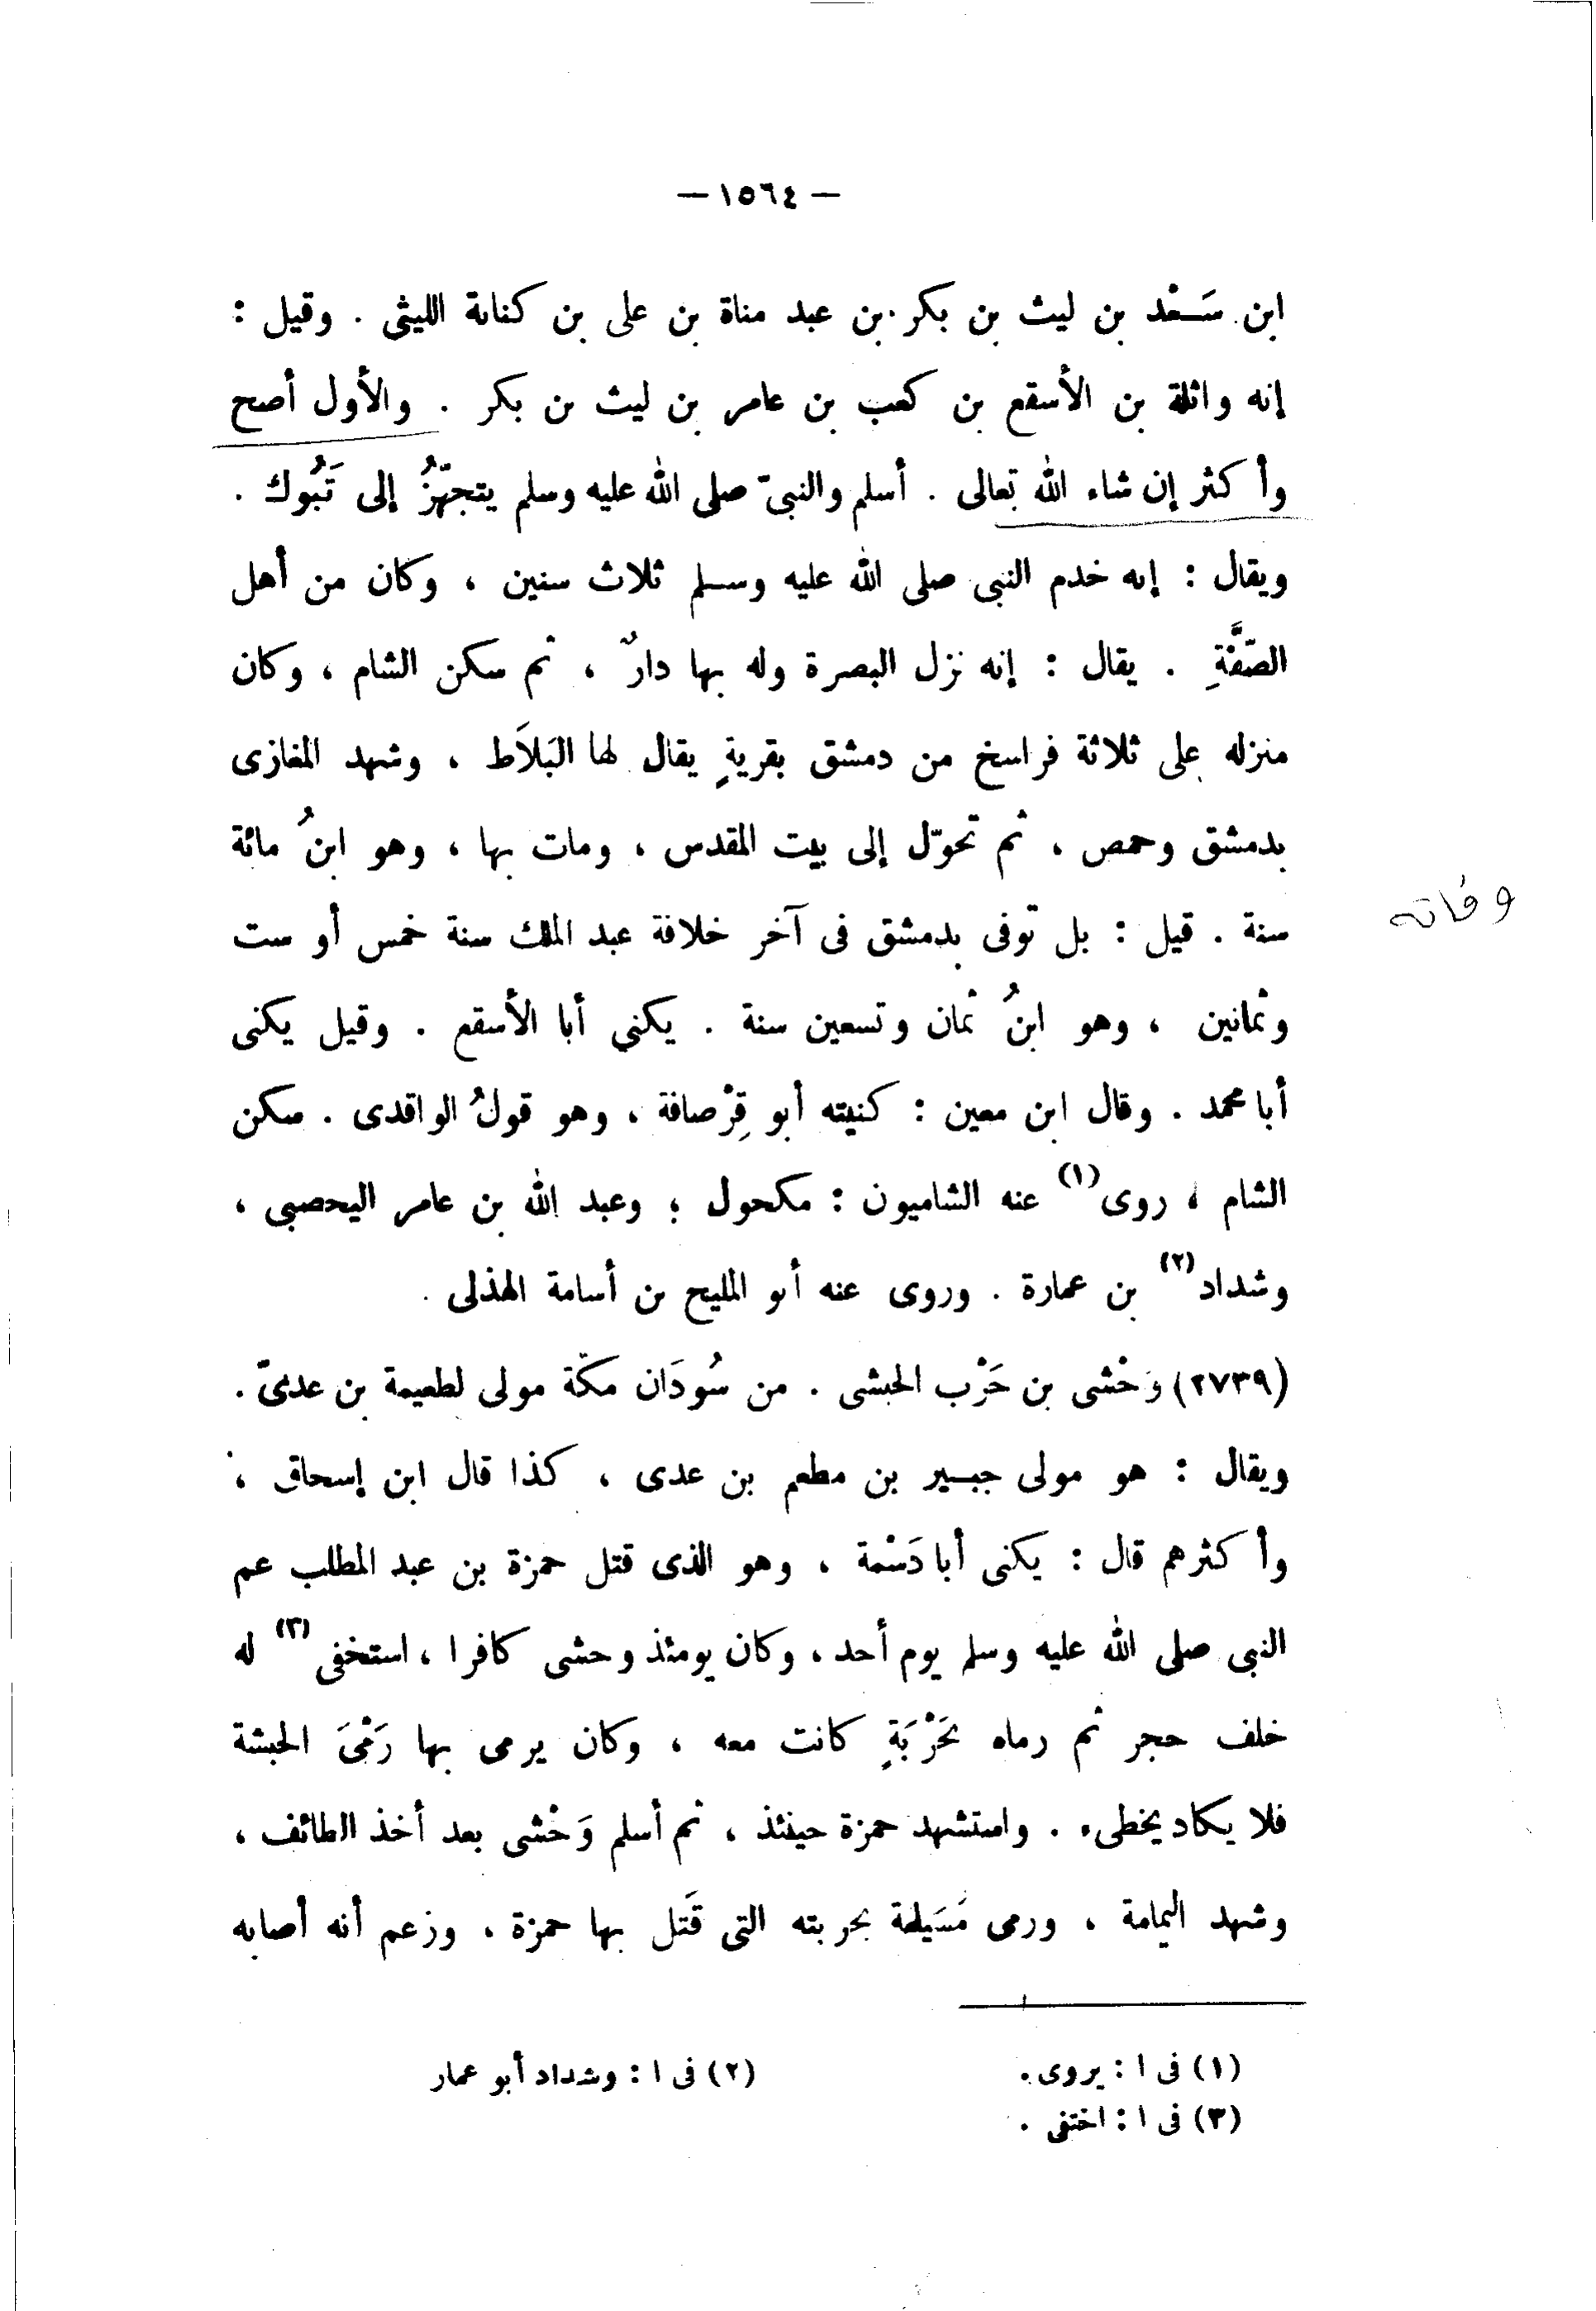 — ١٥٦٤ —
ابن سَعْد بن ليث بن بكر بن عبد مناة بن على بن كنانة الليثى . وقيل :
إنه واثلة بن الأسقع بن كعب بن عامر بن ليث بن بكر . والأول أصح
وأكثر إن شاء الله تعالى . أسلم والنبىّ صلى الله عليه وسلم يتجهّزُ إلى تَبُوك .
ويقال : إنه خدم النبى صلى الله عليه وسلم ثلاث سنين ، وكان من أهل
الصّفَّةِ . يقال : إنه نزل البصرة وله بها دارٌ ، ثم سكن الشام ، وكان
منزله على ثلاثة فراسخ من دمشق بقريةٍ يقال لها البَلاَط ، وشهد المغازى
بدمشق وحمص ، ثم تحوّل إلى بيت المقدس ، ومات بها ، وهو ابنُ مائة
وفاته
سنة . قيل : بل توفى بدمشق فى آخر خلافة عبد الملك سنة خمس أو ست
وثمانين ، وهو ابنُ ثمان وتسعين سنة . يكني أبا الأسقع . وقيل يكنى
أبا محمد . وقال ابن معين : كنيته أبو قِرْصافة ، وهو قولُ الواقدى . سكن
الشام ، روى(١) عنه الشاميون : مكحول ؛ وعبد الله بن عامر اليحصبى ،
وشداد(٢) بن عمارة . وروى عنه أبو المليح بن أسامة الهذلى .
(٢٧٣٩) وَحْشى بن حَرْب الحبشى . من سُودَان مكّة مولى لطعيمة بن عدىّ .
ويقال : هو مولى جبير بن مطعم بن عدى ، كذا قال ابن إسحاق ،
وأكثرهم قال : يكنى أبا دَسْمة ، وهو الذى قتل حمزة بن عبد المطلب عم
النبى صلى الله عليه وسلم يوم أحد ، وكان يومئذ وحشى كافرا ، استخفى(٣) له
خلف حجر ثم رماه بحَرْبَةٍ كانت معه ، وكان يرمى بها رَمْىَ الحبشة
فلا يكاد يخطىء . واستشهد حمزة حينئذ ، ثم أسلم وَحْشى بعد أخذ الطائف ،
وشهد اليمامة ، ورمى مُسَيلمة بحربته التى قَتل بها حمزة ، وزعم أنه أصابه
(١) فى ا : يروى .
(٢) فى ا : وشداد أبو عمار
(٣) فى ا : اختفى .